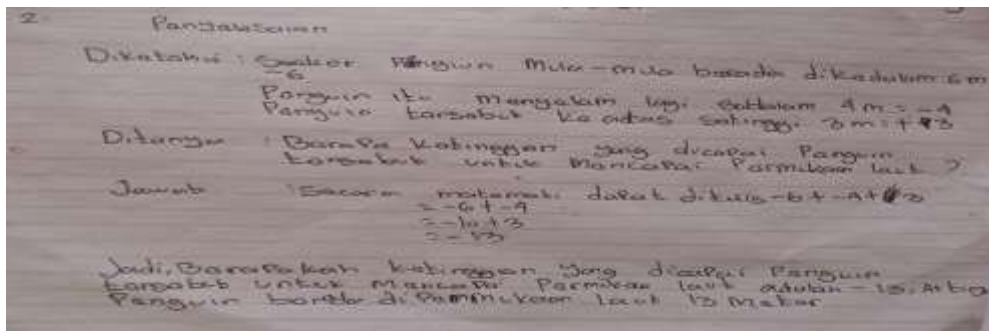 2. Panyalesaian
Dikatahui : Seekor Pingiun Mula-mula barada dikadalam 6 m
-6
Panguin itu manyalam lagi sadalam 4 m = -4
Panguin tarsabut ka atas satinggi 3 m = + 3
Ditanya : Barapa katinggan yang dicapai Panguin
tarsabut untuk Mancapai Parmukaan laut ?
Jawab : Sacara matamati dapat ditulis -6 + -4 + 3
= -6 + -4
= -10 + 3
= -13
Jadi, Barapakah katinggan yang dicapai Panguin
tarsabut untuk Mancapai Parmukaan laut adalah - 13, Artinya
Panguin barada di Parmukaan laut 13 Matar